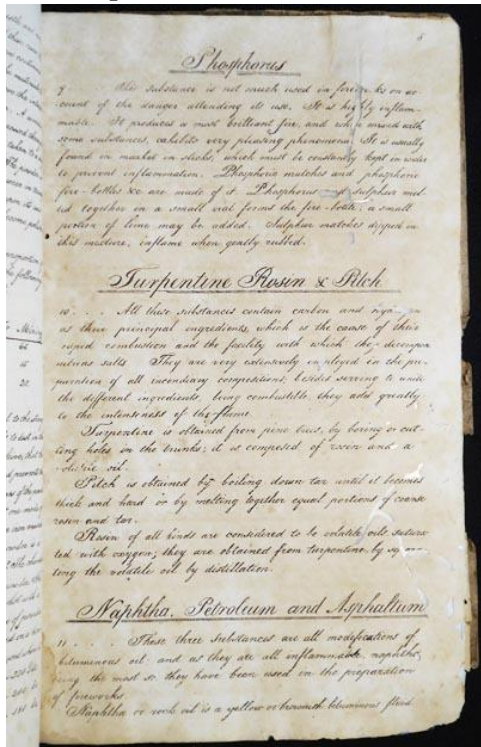 Phosphorus
9 this substance is not much used in fireworks on ac-
count of the danger attending its use. It is highly inflam-
mable. It produces a most brilliant fire, and when mixed with
some substances, exhibits very pleasing phenomena. It is usually
found in market in sticks, which must be constantly kept in water
to prevent inflammation. Phosphoric matches and phosphoric
fire-bottles &c are made of it. Phosphorus and sulphur mel-
ted together in a small vial forms the fire-bottle; a small
portion of lime may be added. Sulphur matches dipped in
this mixture, inflame when gently rubbed.
Turpentine Rosin & Pitch
10 . . . All these substances contain carbon and
as three principal ingredients, which is the cause of their
rapid combustion and the facility with which they decompose
nitrous salts. They are very extensively employed in the pre-
paration of all incendiary compositions; besides serving to unite
the different ingredients, being combustible, they add greatly
to the intenseness of the flame.
Turpentine is obtained from pine trees, by boring or cut-
ting holes in the trunks; it is composed of rosin and a
volatile oil.
Pitch is obtained by boiling down tar until it becomes
thick and hard or by melting together equal portions of coarse
rosin and tar.
Rosin of all kinds are considered to be volatile oils satura-
ted with oxygen; they are obtained from turpentine, by
the volatile oil by distillation.
Naphtha, Petroleum and Asphaltum
11 . . . . These three substances are all modifications of
bituminous oil; and as they are all inflammable, naphtha,
being the most so, they have been used in the preparation
of fireworks.
Naphtha or rock oil is a yellow or brownish bituminous fluid